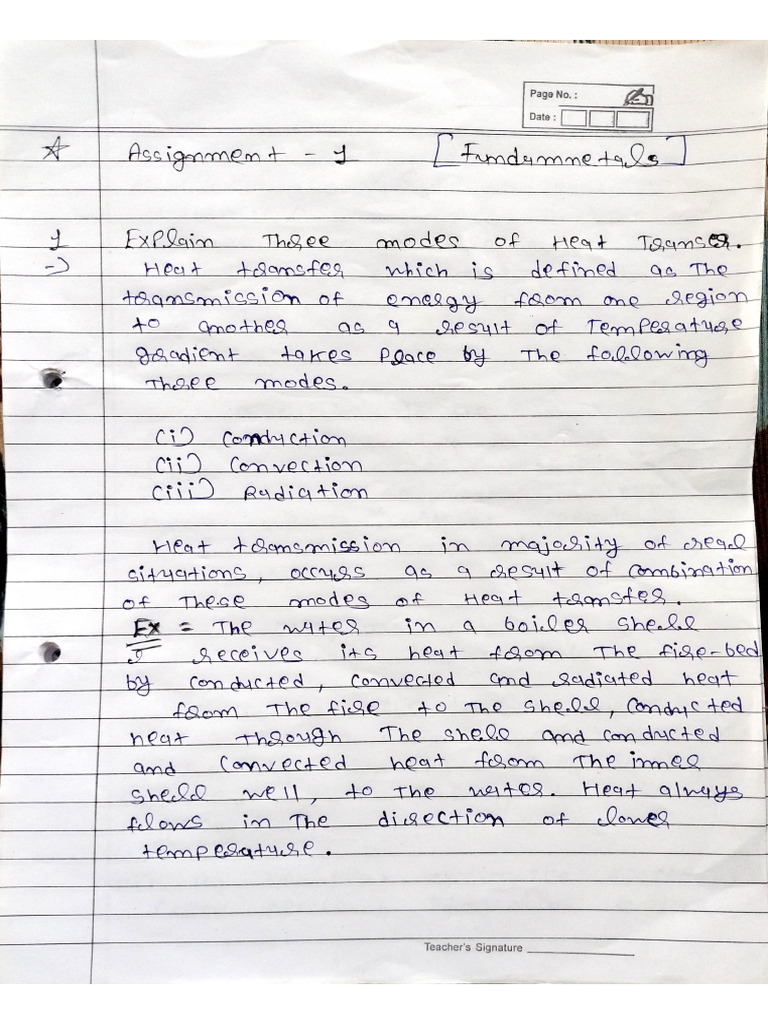 Page No. :
Date :
Assignment - 1 [Fundamnetals]
1 Explain Three modes of Heat Transer.
→ Heat transfer which is defined as The
transmission of energy from one region
to another as a result of Temperature
gradient takes Place by The following
Three modes.
(i) Conduction
(ii) Convection
(iii) Radiation
Heat transmission in majority of real
situations, occurs as a result of combination
of These modes of Heat transfer.
Ex = The water in a boiler shell
receives its heat from The fire-bed
by conducted, convected and radiated heat
from The fire to The shell, conducted
heat Through The shell and conducted
and convected heat from The inner
shell well, to The water. Heat always
flows in The direction of lower
temperature.
Teacher's Signature